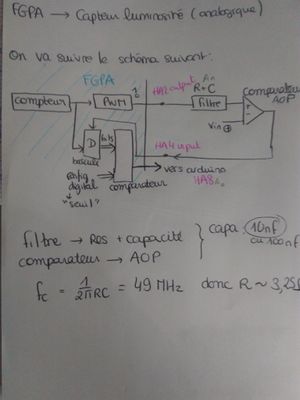 FGPA → Capteur luminosité (analogique)
On va suivre le schéma suivant:
FGPA
compteur → PWM
HA2 output
R+C
filtre
comparateur
AOP
Vin
D
bascule
HA4 input
vers arduino
HA8
config
digital
"seuil"
comparateur
filtre → Res + capacité
comparateur → AOP
capa: 10nF
ou 100nF
fc = 1/2πRC = 49 MHz donc R ~ 3,25